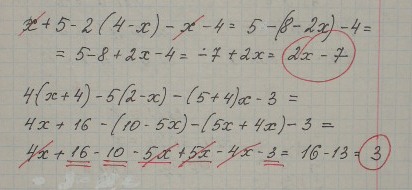 x + 5 - 2 (4 - x) - x - 4 = 5 - (8 - 2x) - 4 =
= 5 - 8 + 2x - 4 = -7 + 2x = 2x - 7
4(x + 4) - 5(2 - x) - (5 + 4)x - 3 =
4x + 16 - (10 - 5x) - (5x + 4x) - 3 =
4x + 16 - 10 - 5x + 5x - 4x - 3 = 16 - 13 = 3